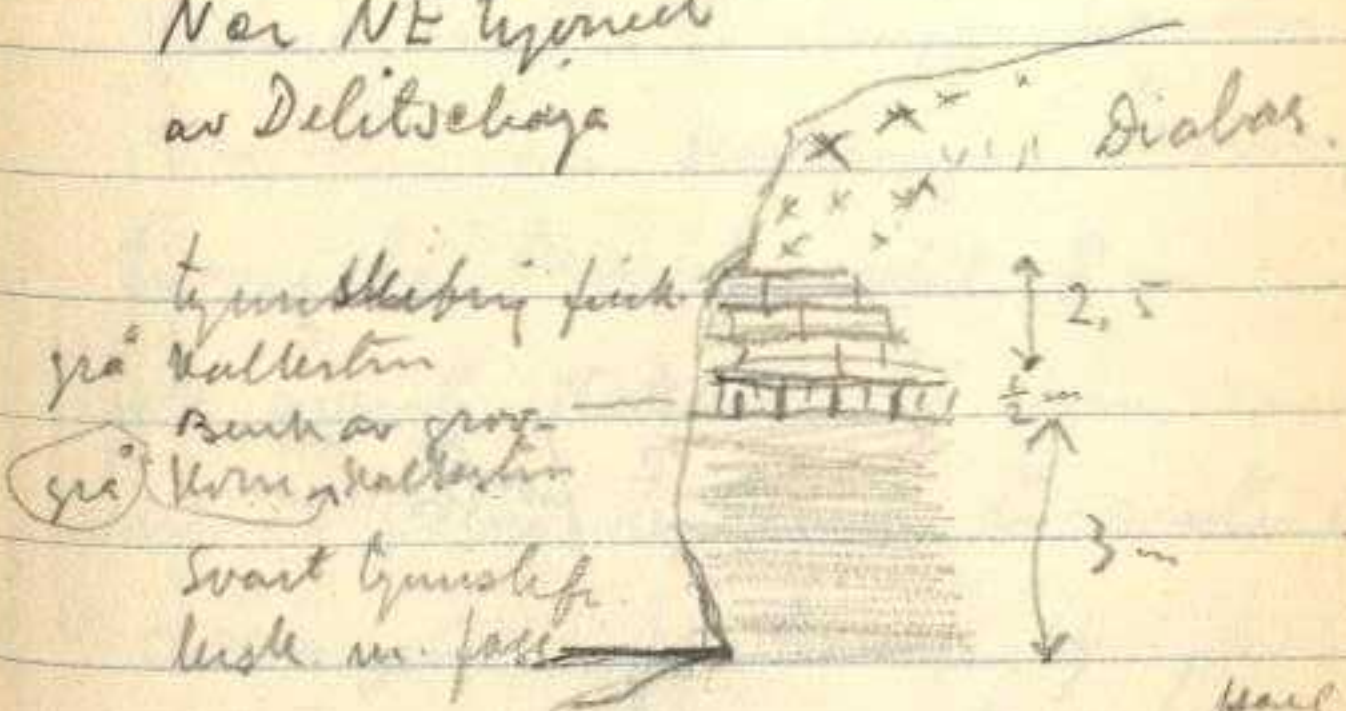 Nær NE hjørnet
av Delitschøya
Diabas.
tynnskifrig
2,5
grå Kalkestein
½ m
Benk av grov-
grå Korn. kalkestein
Svart tynnskifr.
3 m
m. foss